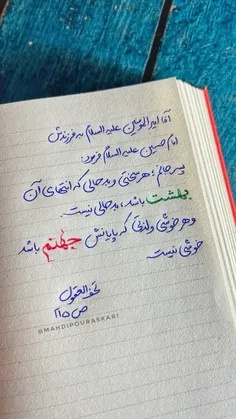 آقا امیرالمؤمنین علیه السلام به فرزندش
امام حسین علیه السلام فرمود:
پسر جانم؛ هر سختی و بدحالی که انتهای آن
بهشت باشد، بدحالی نیست.
و هر خوشی و لذتی که پایانش جهنم باشد
خوشی نیست
تحف العقول
ص ۱۱۵
@MAHDIPOURASKARI